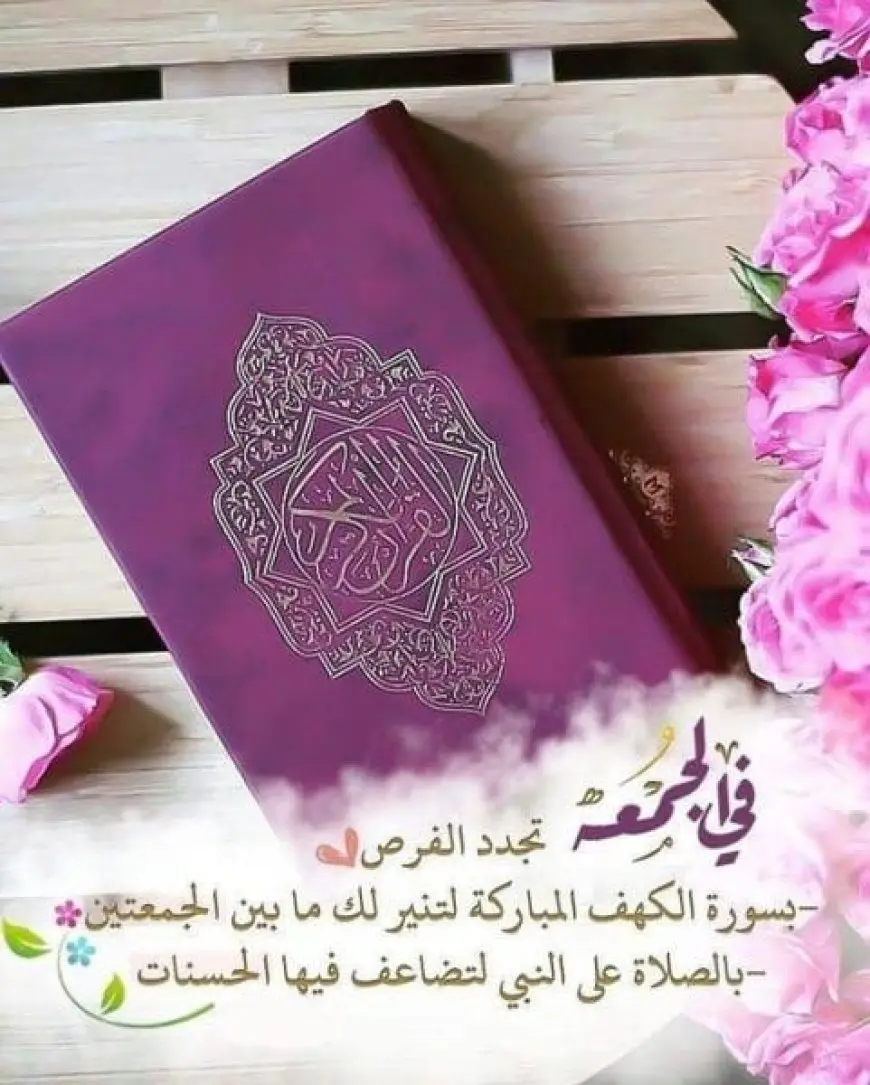 القرآن الكريم
في الجمعة تجدد الفرص
-بسورة الكهف المباركة لتنير لك ما بين الجمعتين
-بالصلاة على النبي لتضاعف فيها الحسنات